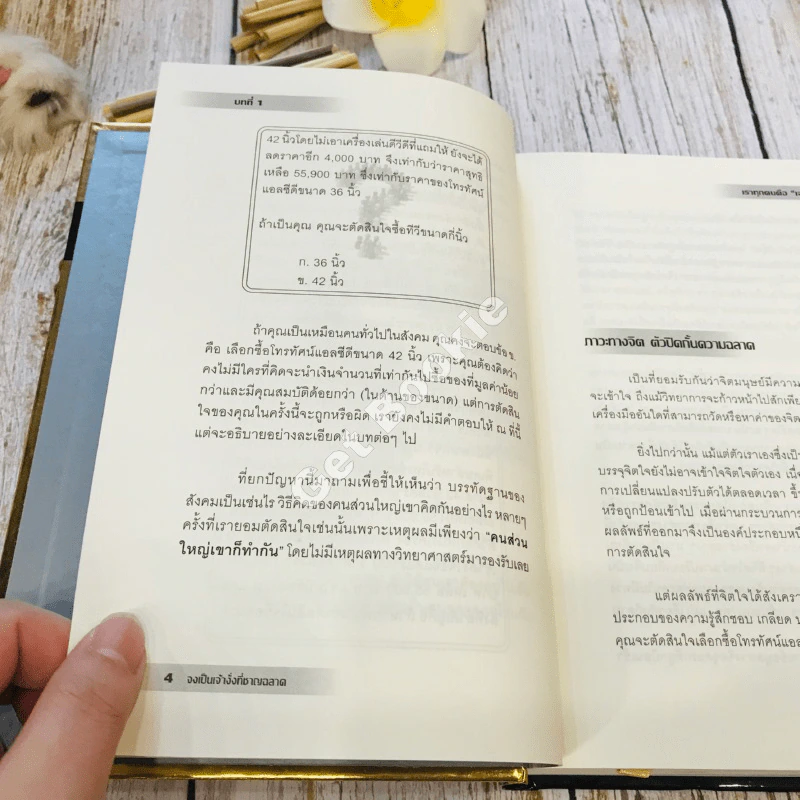 บทที่ 1
42 นิ้วโดยไม่เอาเครื่องเล่นดีวีดีที่แถมให้ ยังจะได้
ลดราคาอีก 4,000 บาท จึงเท่ากับว่าราคาสุทธิ
เหลือ 55,900 บาท ซึ่งเท่ากับราคาของโทรทัศน์
แอลซีดีขนาด 36 นิ้ว
ถ้าเป็นคุณ คุณจะตัดสินใจซื้อทีวีขนาดกี่นิ้ว
ก. 36 นิ้ว
ข. 42 นิ้ว
ถ้าคุณเป็นเหมือนคนทั่วไปในสังคม คุณคงจะตอบข้อ ข.
คือ เลือกซื้อโทรทัศน์แอลซีดีขนาด 42 นิ้ว เพราะคุณต้องคิดว่า
คงไม่มีใครที่คิดจะนำเงินจำนวนที่เท่ากันไปซื้อของที่มูลค่าน้อย
กว่าและมีคุณสมบัติด้อยกว่า (ในด้านของขนาด) แต่การตัดสิน
ใจของคุณในครั้งนี้จะถูกหรือผิด เรายังคงไม่มีคำตอบให้ ณ ที่นี้
แต่จะอธิบายอย่างละเอียดในบทต่อๆ ไป
ที่ยกปัญหานี้มาถามเพื่อชี้ให้เห็นว่า บรรทัดฐานของ
สังคมเป็นเช่นไร วิธีคิดของคนส่วนใหญ่เขาคิดกันอย่างไร หลายๆ
ครั้งที่เรายอมตัดสินใจเช่นนั้นเพราะเหตุผลมีเพียงว่า “คนส่วน
ใหญ่เขาก็ทำกัน” โดยไม่มีเหตุผลทางวิทยาศาสตร์มารองรับเลย
4 จงเป็นเจ้างั่งที่ชาญฉลาด
Get Bookie
เราทุกคนคือ
ภาวะทางจิต ตัวปิดกั้นความฉลาด
เป็นที่ยอมรับกันว่าจิตมนุษย์มีความ
จะเข้าใจ ถึงแม้วิทยาการจะก้าวหน้าไปสักเพีย
เครื่องมืออันใดที่สามารถวัดหรือหาค่าของจิต
ยิ่งไปกว่านั้น แม้แต่ตัวเราเองซึ่งเป็
บรรจุจิตใจยังไม่อาจเข้าใจจิตใจตัวเอง เนื่
การเปลี่ยนแปลงปรับตัวได้ตลอดเวลา ขึ้
หรือถูกป้อนเข้าไป เมื่อผ่านกระบวนการ
ผลลัพธ์ที่ออกมาจึงเป็นองค์ประกอบหนึ่
การตัดสินใจ
แต่ผลลัพธ์ที่จิตใจได้สังเครา
ประกอบของความรู้สึกชอบ เกลียด
คุณจะตัดสินใจเลือกซื้อโทรทัศน์แอล